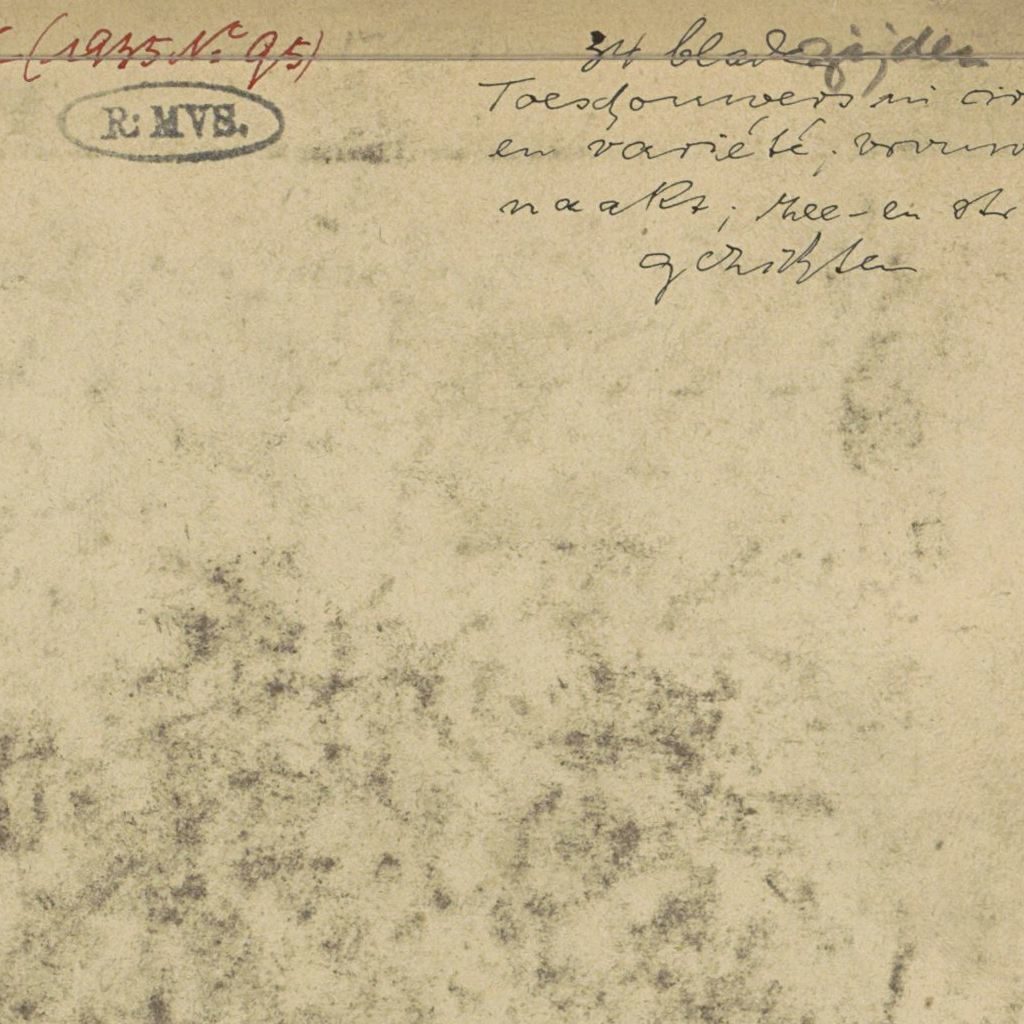 (1935 Nº 95)
R: MVS.
34 bladzijden
Toeschouwers in cir
en variété; vrouw
naakt; Zee- en str
gezichten